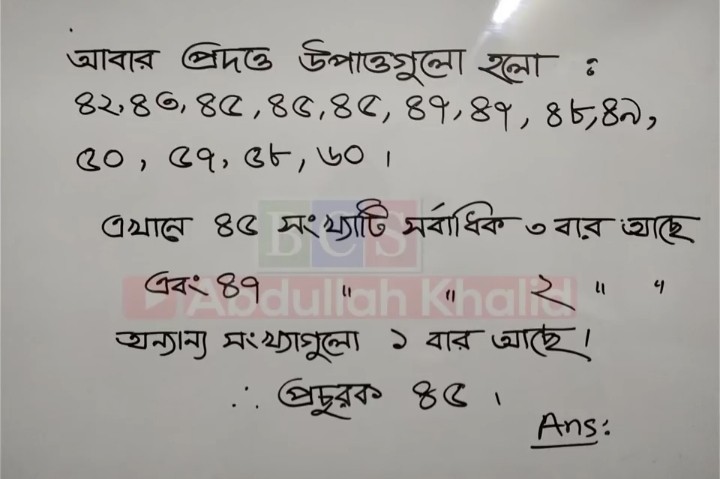 আবার প্রদত্ত উপাত্তগুলো হলো :
৪২, ৪৩, ৪৫, ৪৫, ৪৫, ৪৭, ৪৭, ৪৮, ৪৯,
৫০, ৫৭, ৫৮, ৬০ ।
এখানে ৪৫ সংখ্যাটি সর্বাধিক ৩ বার আছে
এবং ৪৭ " " ২ " "
অন্যান্য সংখ্যাগুলো ১ বার আছে।
∴ প্রচুরক ৪৫ ।
Ans:
BCS
Abdullah Khalid